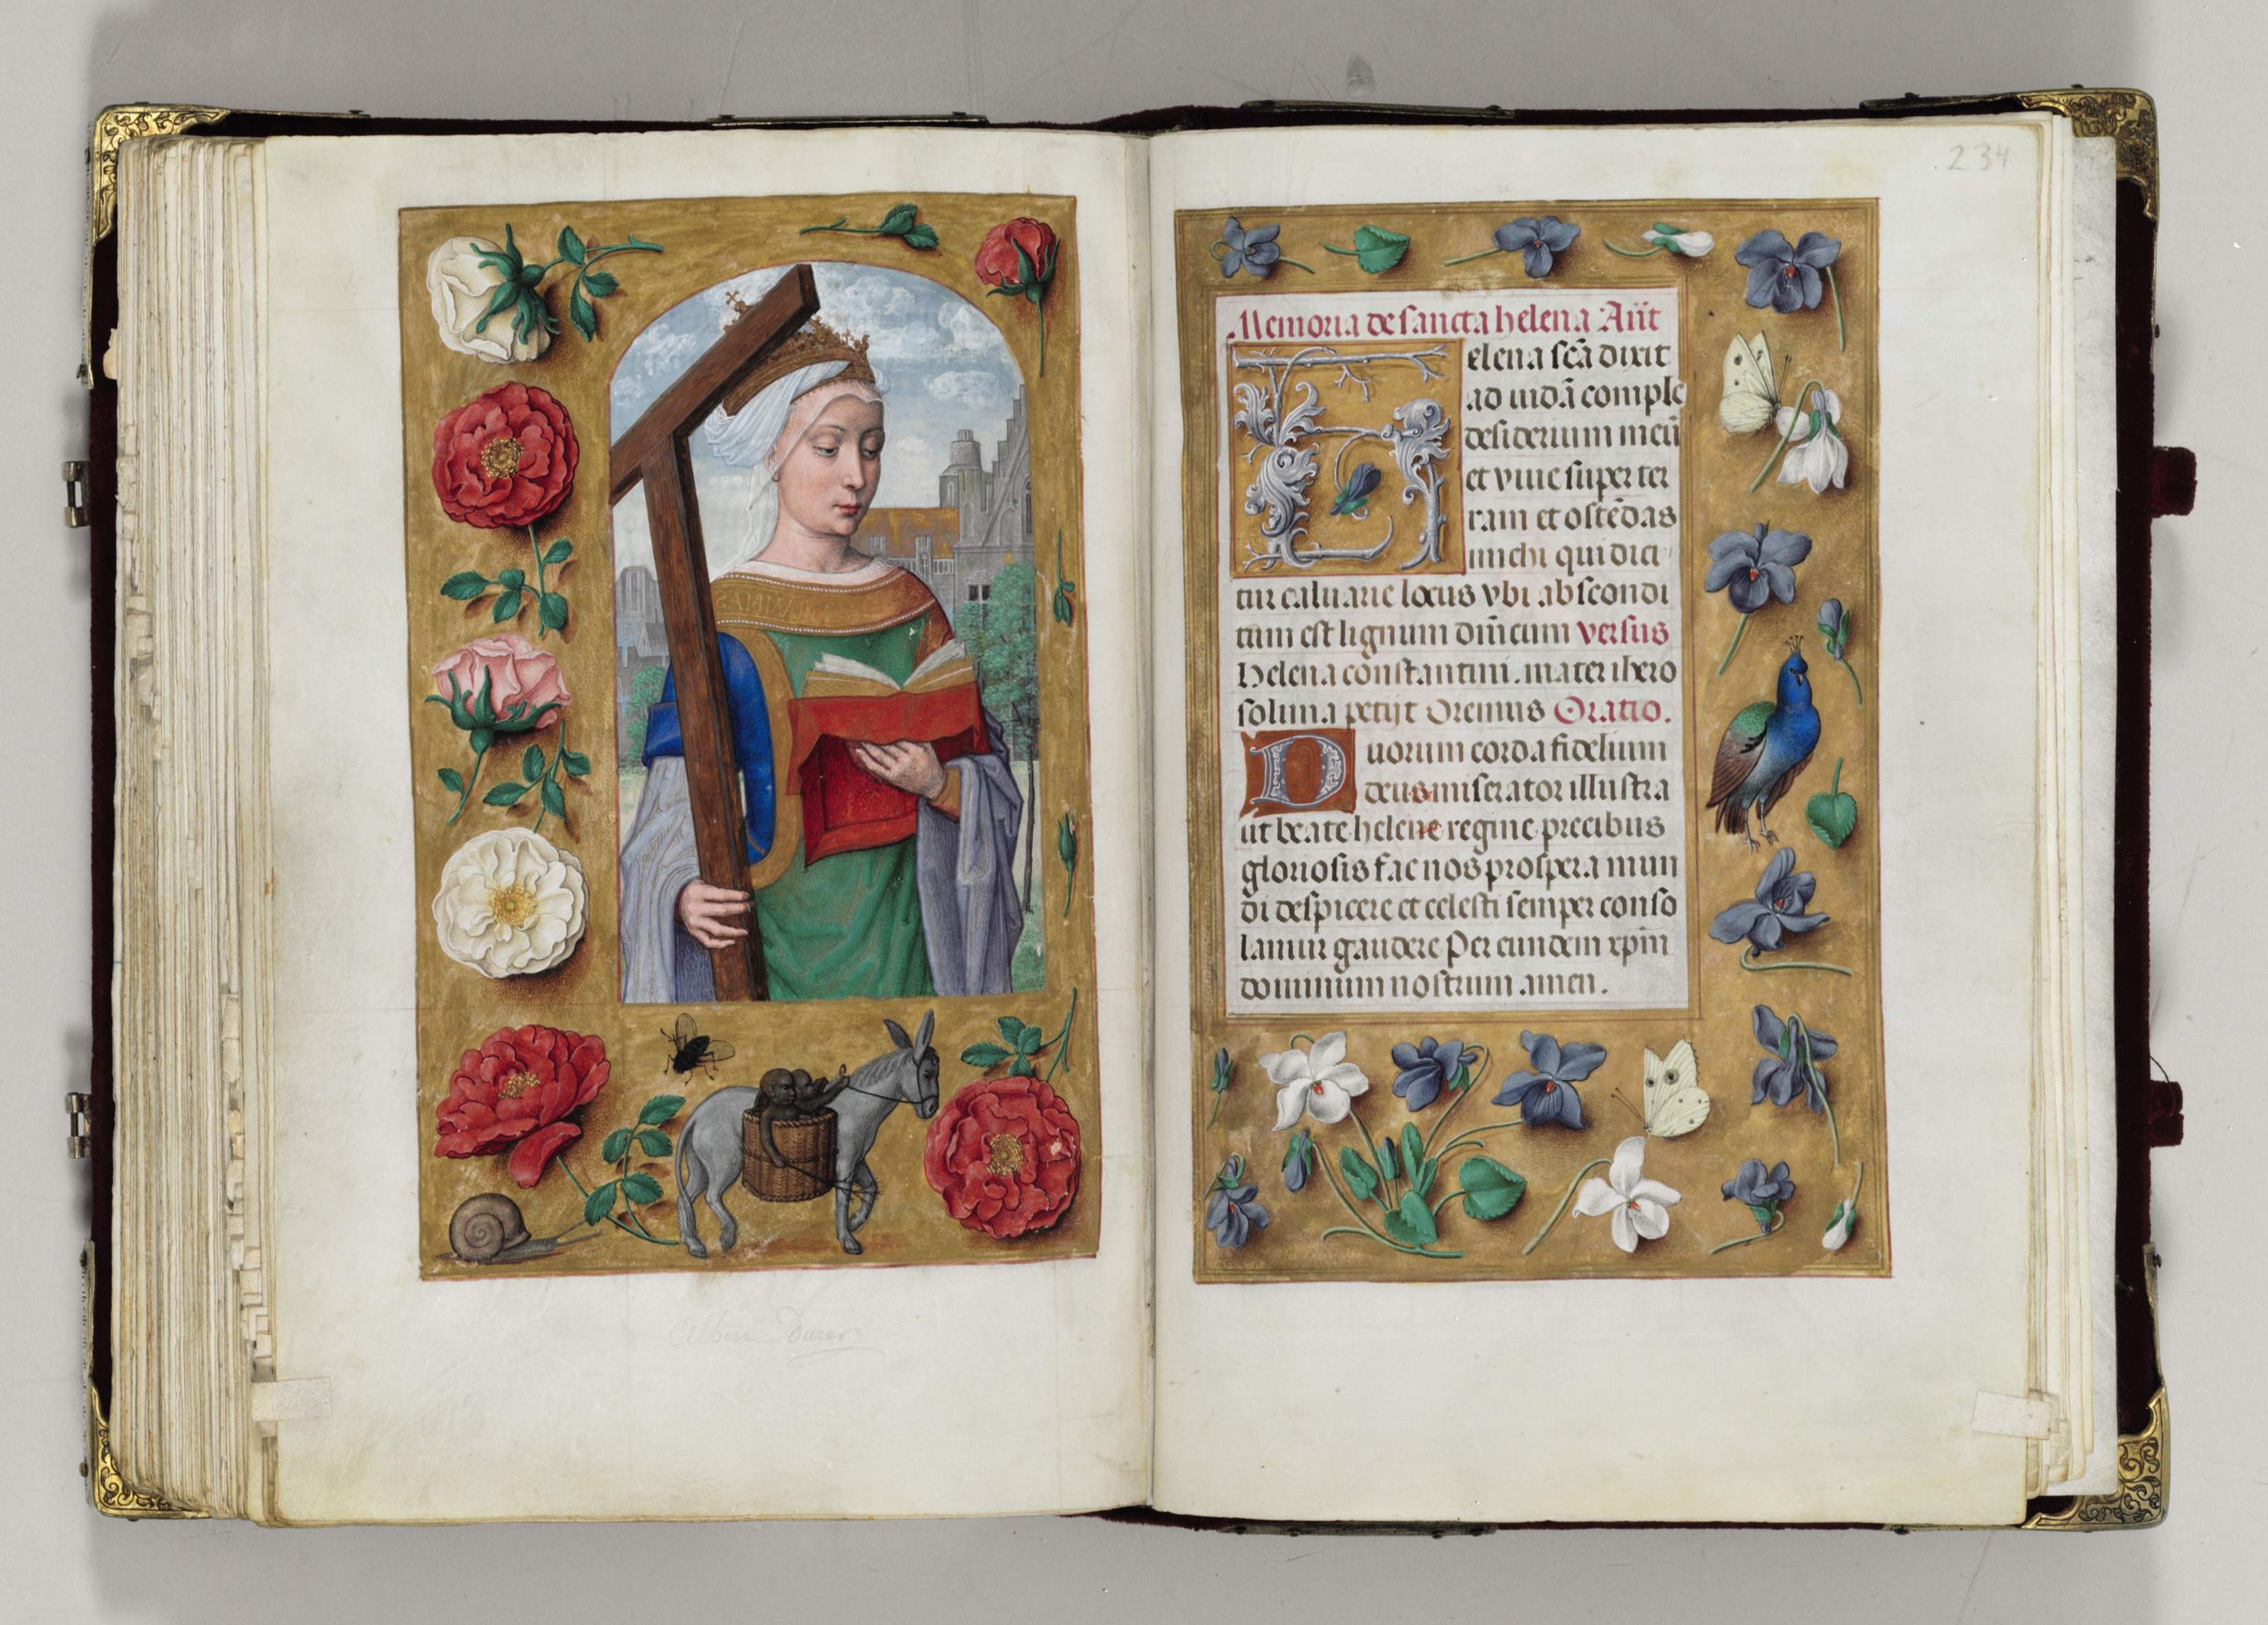 Albert Durer
234
Memoria de sancta helena Añt
elena sc̄a dixit
ad iudā comple
desiderium meū
et viue super ter
ram et ostēdas
michi qui dici
tur caluarie locus vbi abscondi
tum est lignum dñicum versus
Helena constantini mater ihero
solima petijt Oremus Oratio.
Duorum corda fidelium
deus miserator illustra
ut beate helene regine precibus
gloriosis fac nos prospera mun
di despicere et celesti semper conso
lamur gaudere Per eundem xp̄m
dominum nostrum amen.